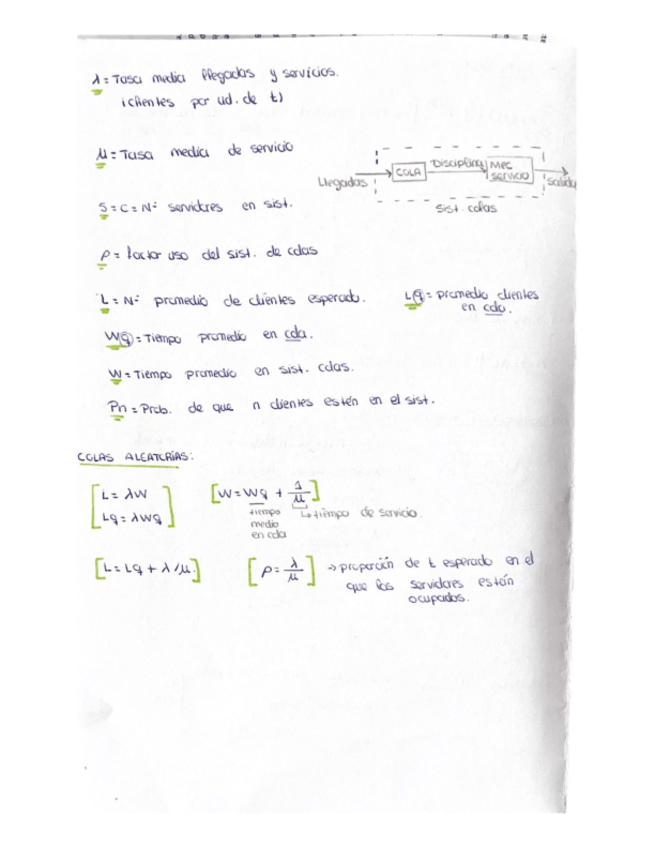 λ = Tasa media llegadas y servicios.
(clientes por ud. de t)
μ = Tasa media de servicio
Llegadas COLA Disciplina Mec servicio salida
sist. colas
S = C = Nº servidores en sist.
ρ = factor uso del sist. de colas
L = Nº promedio de clientes esperado. Lq = promedio clientes
en cola.
Wq = Tiempo promedio en cola.
W = Tiempo promedio en sist. colas.
Pn = Prob. de que n clientes estén en el sist.
COLAS ALEATORIAS:
[L = λW [W = Wq + 1/μ]
Lq = λWq] tiempo medio en cola ↳ tiempo de servicio.
[L = Lq + λ/μ.] [ρ = λ/μ] → proporción de t esperado en el
que los servidores están
ocupados.